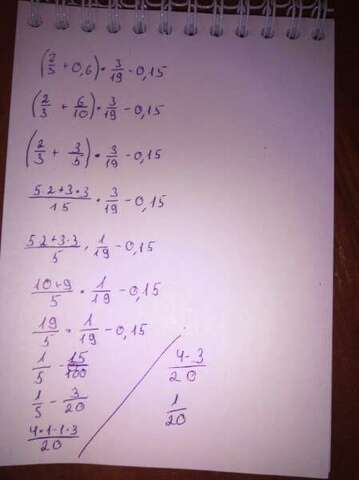 (2/3 + 0,6) • 3/19 - 0,15
(2/3 + 6/10) • 3/19 - 0,15
(2/3 + 3/5) • 3/19 - 0,15
5·2+3•3/15 • 3/19 - 0,15
5·2+3·3/5 · 1/19 - 0,15
10+9/5 • 1/19 - 0,15
19/5 • 1/19 - 0,15
1/5 - 15/100
1/5 - 3/20
4•1-1·3/20
4-3/20
1/20